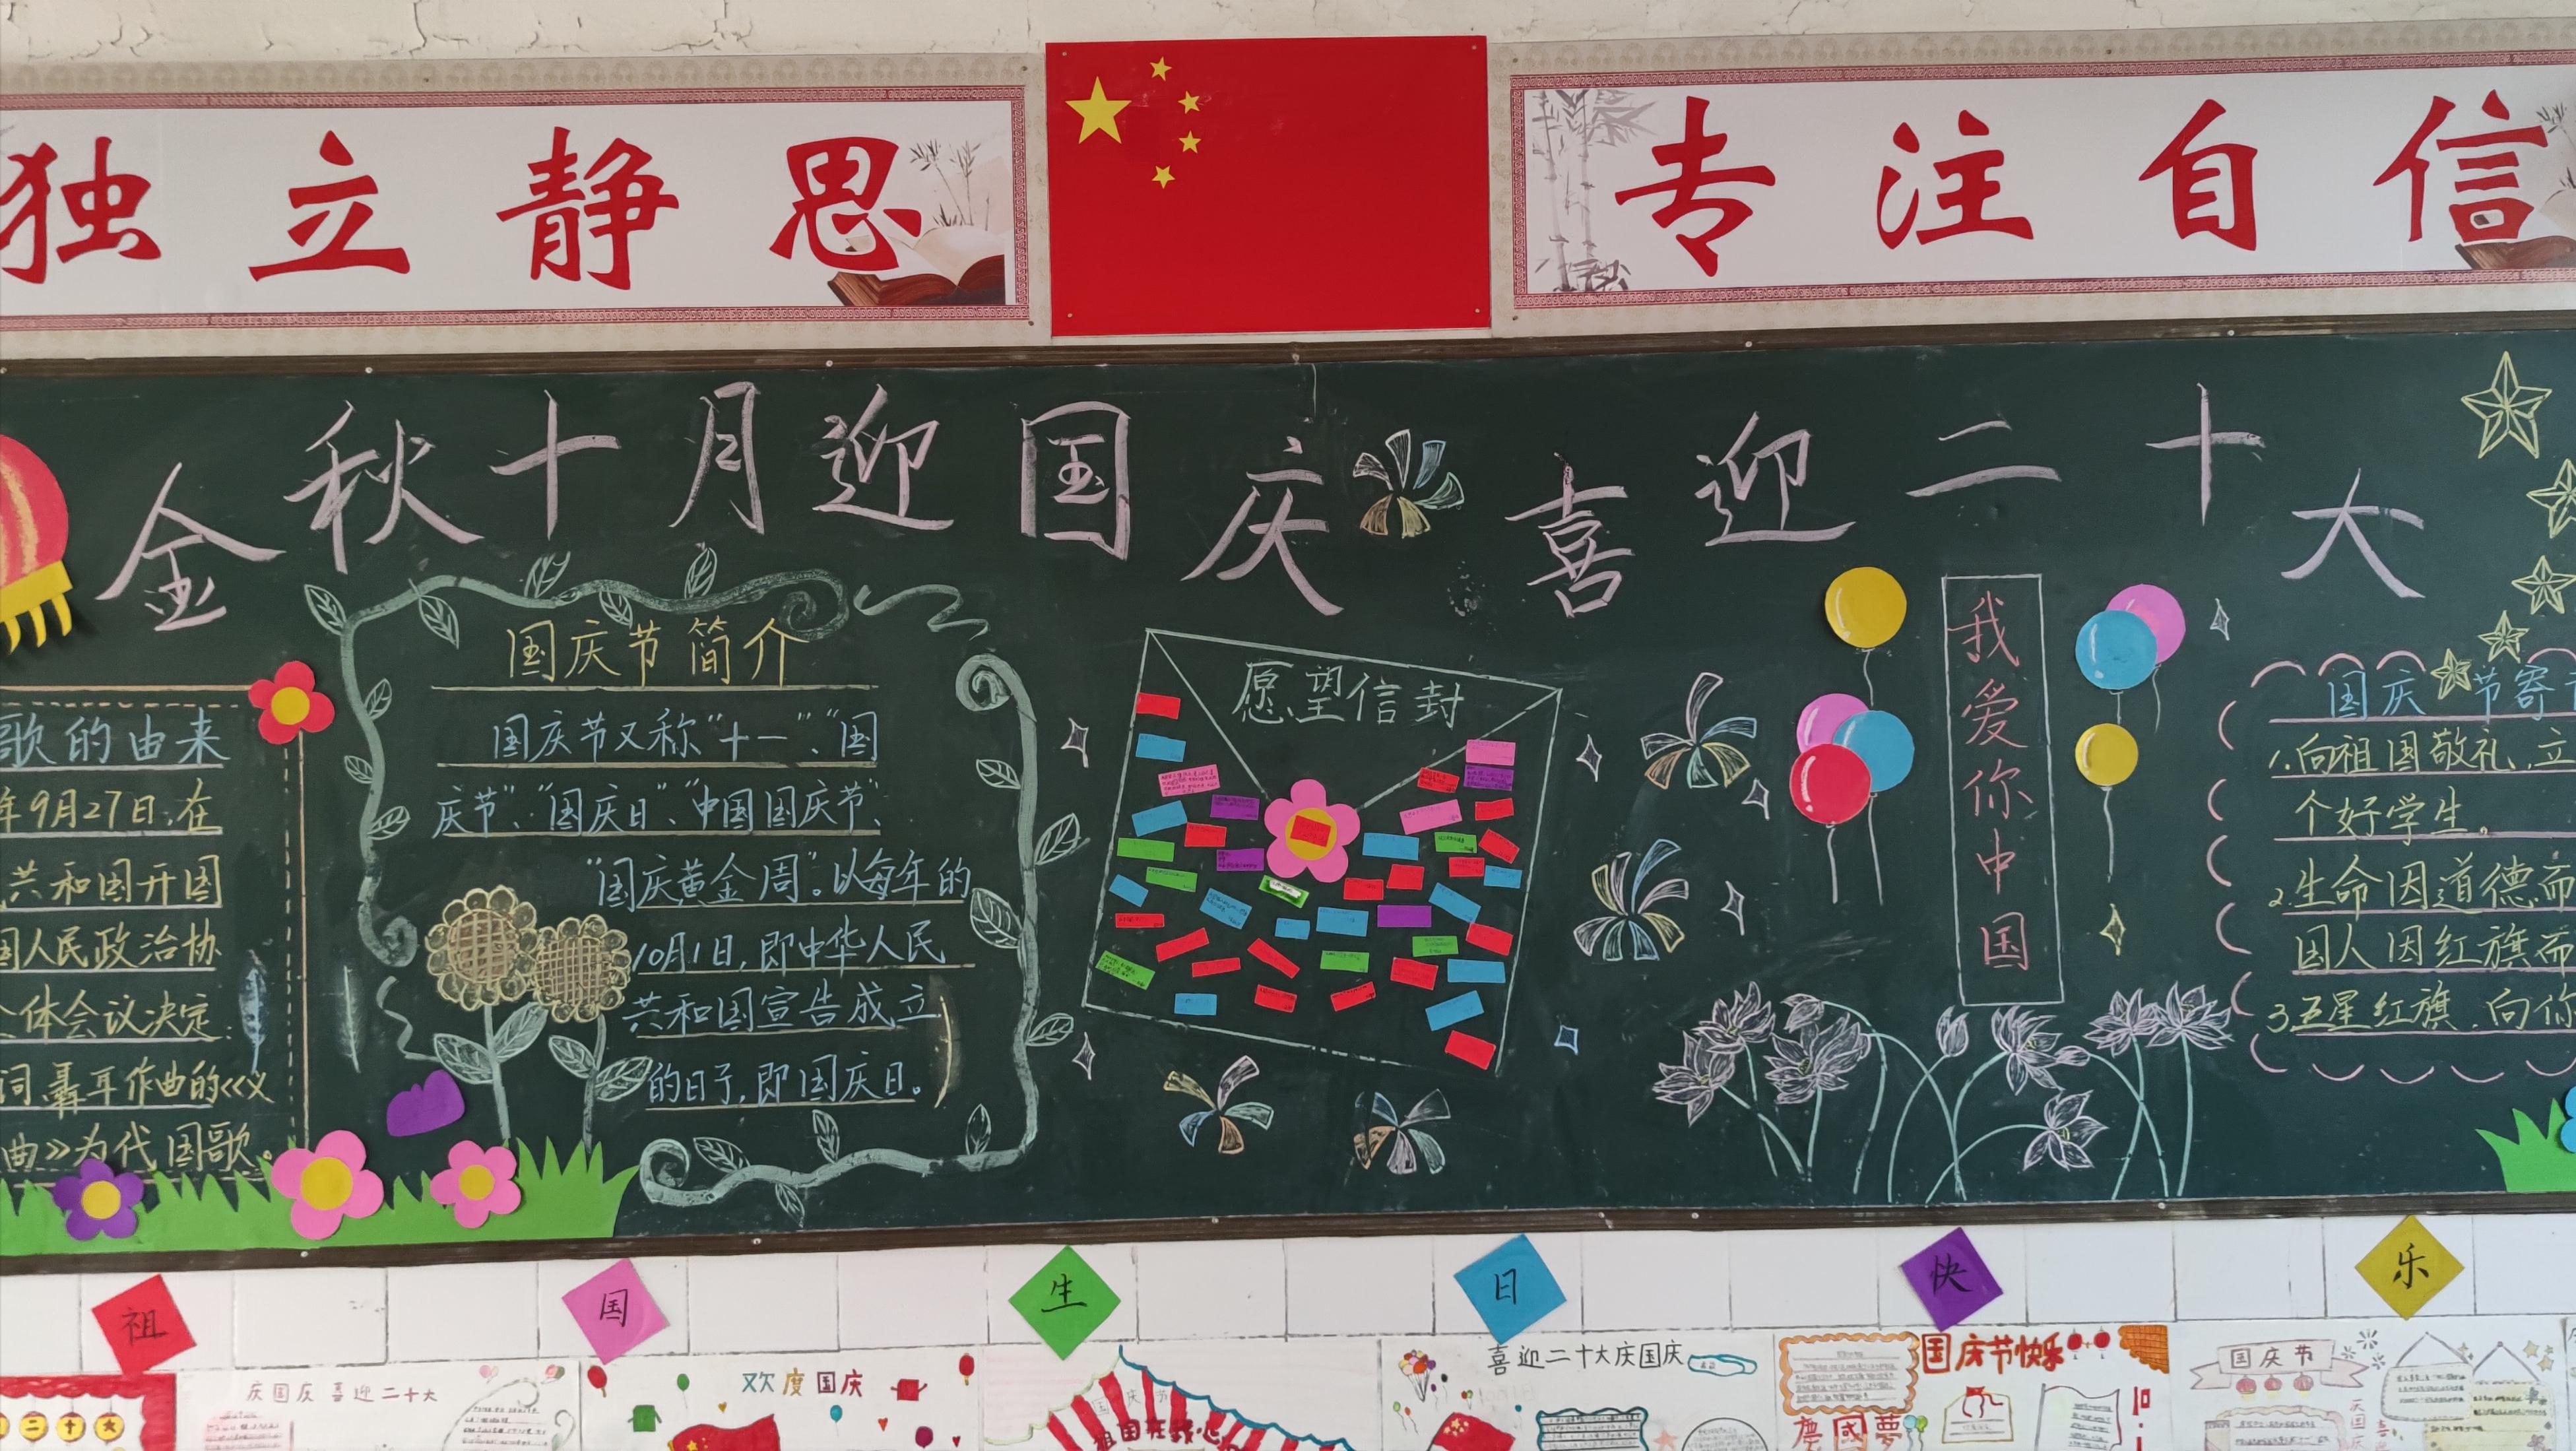 独立静思
专注自信
金秋十月迎国庆
喜迎二十大
歌的由来
年9月27日,在
共和国开国
国人民政治协
体会议决定:
词聂耳作曲的《义
曲》为代国歌。
国庆节简介
国庆节又称“十一”、“国
庆节”、“国庆日”、“中国国庆节”、
“国庆黄金周”。以每年的
10月1日,即中华人民
共和国宣告成立
的日子,即国庆日。
愿望信封
我爱你中国
国庆节寄
1.向祖国敬礼,立
个好学生。
2.生命因道德而
国人因红旗而
3五星红旗,向你
祖国生日快乐
二十大
庆国庆喜迎二十大
欢度国庆
国庆节
祖国在我心
喜迎二十大庆国庆
国庆节快乐
國夢
国庆节